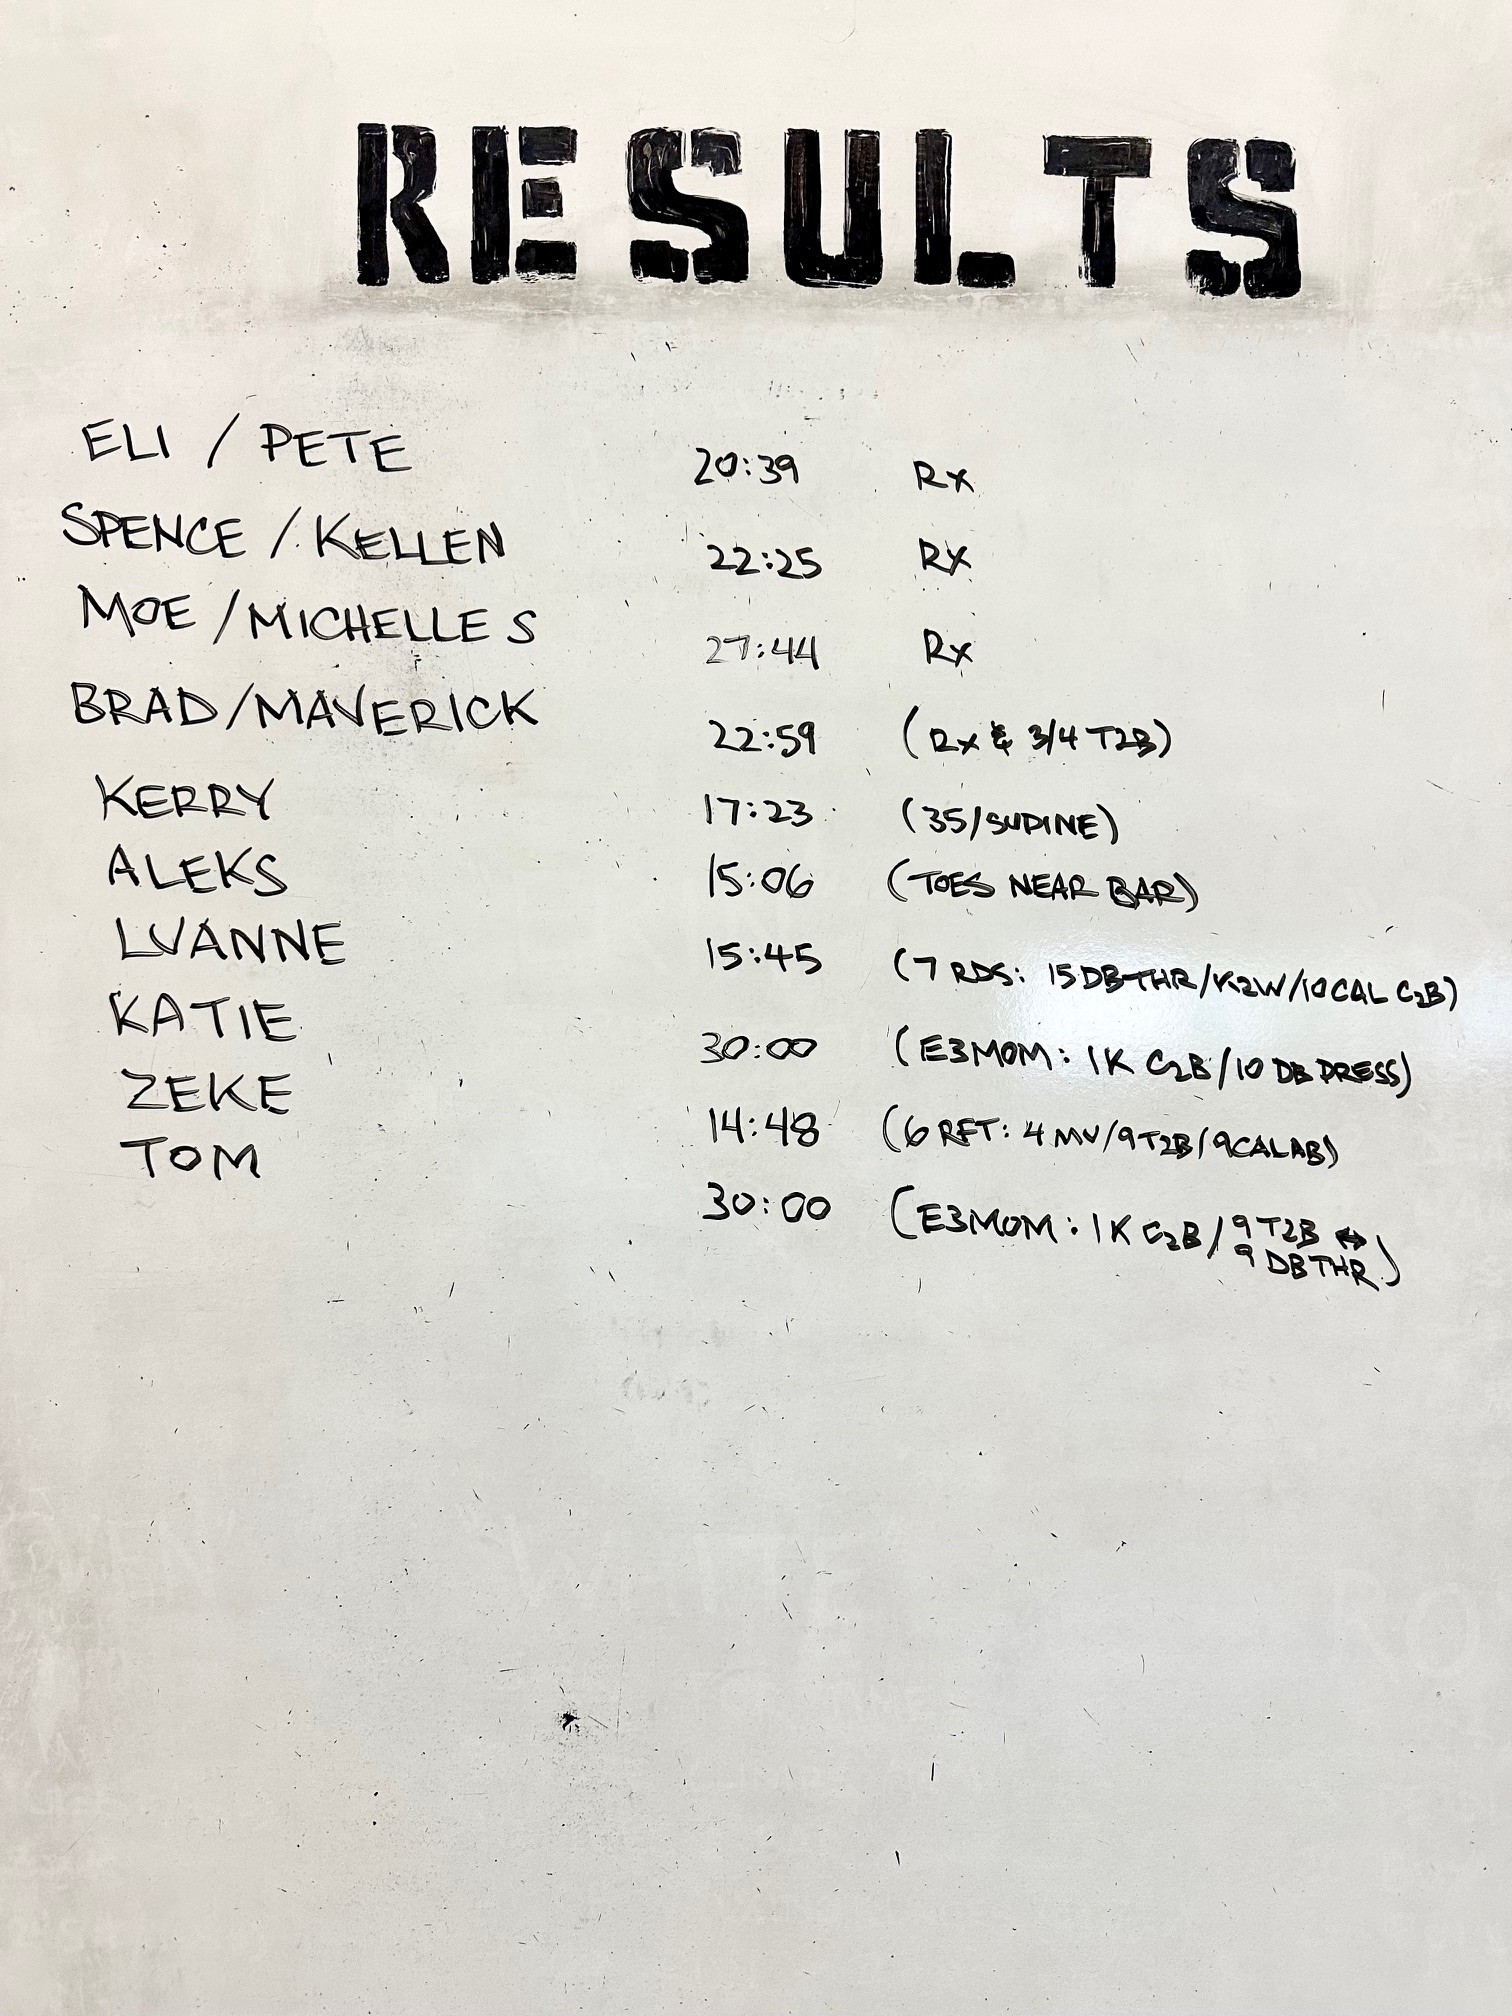 RESULTS
ELI / PETE 20:39 Rx
SPENCE / KELLEN 22:25 Rx
MOE / MICHELLE S 27:44 Rx
BRAD/MAVERICK 22:59 (Rx & 3/4 T2B)
KERRY 17:23 (35/SUPINE)
ALEKS 15:06 (TOES NEAR BAR)
LUANNE 15:45 (7 RDS: 15 DB THR/K2W/10 CAL C2B)
KATIE 30:00 (E3MOM: 1K C2B/10 DB PRESS)
ZEKE 14:48 (6 RFT: 4 MU/9 T2B/9 CAL AB)
TOM 30:00 (E3MOM: 1K C2B/9 T2B ↔
9 DB THR)